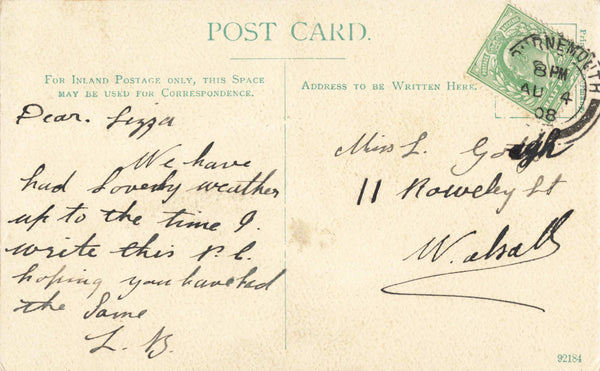 POST CARD.
FOR INLAND POSTAGE ONLY, THIS SPACE
MAY BE USED FOR CORRESPONDENCE.
ADDRESS TO BE WRITTEN HERE.
BOURNEMOUTH
8 PM
AU 4
08
Dear. Lizza
We have
had Loverly weather
up to the time I.
write this P.C.
hoping you have had
the Same
L. B.
Miss L. Gough
11 Roweley St
Walsall
92184